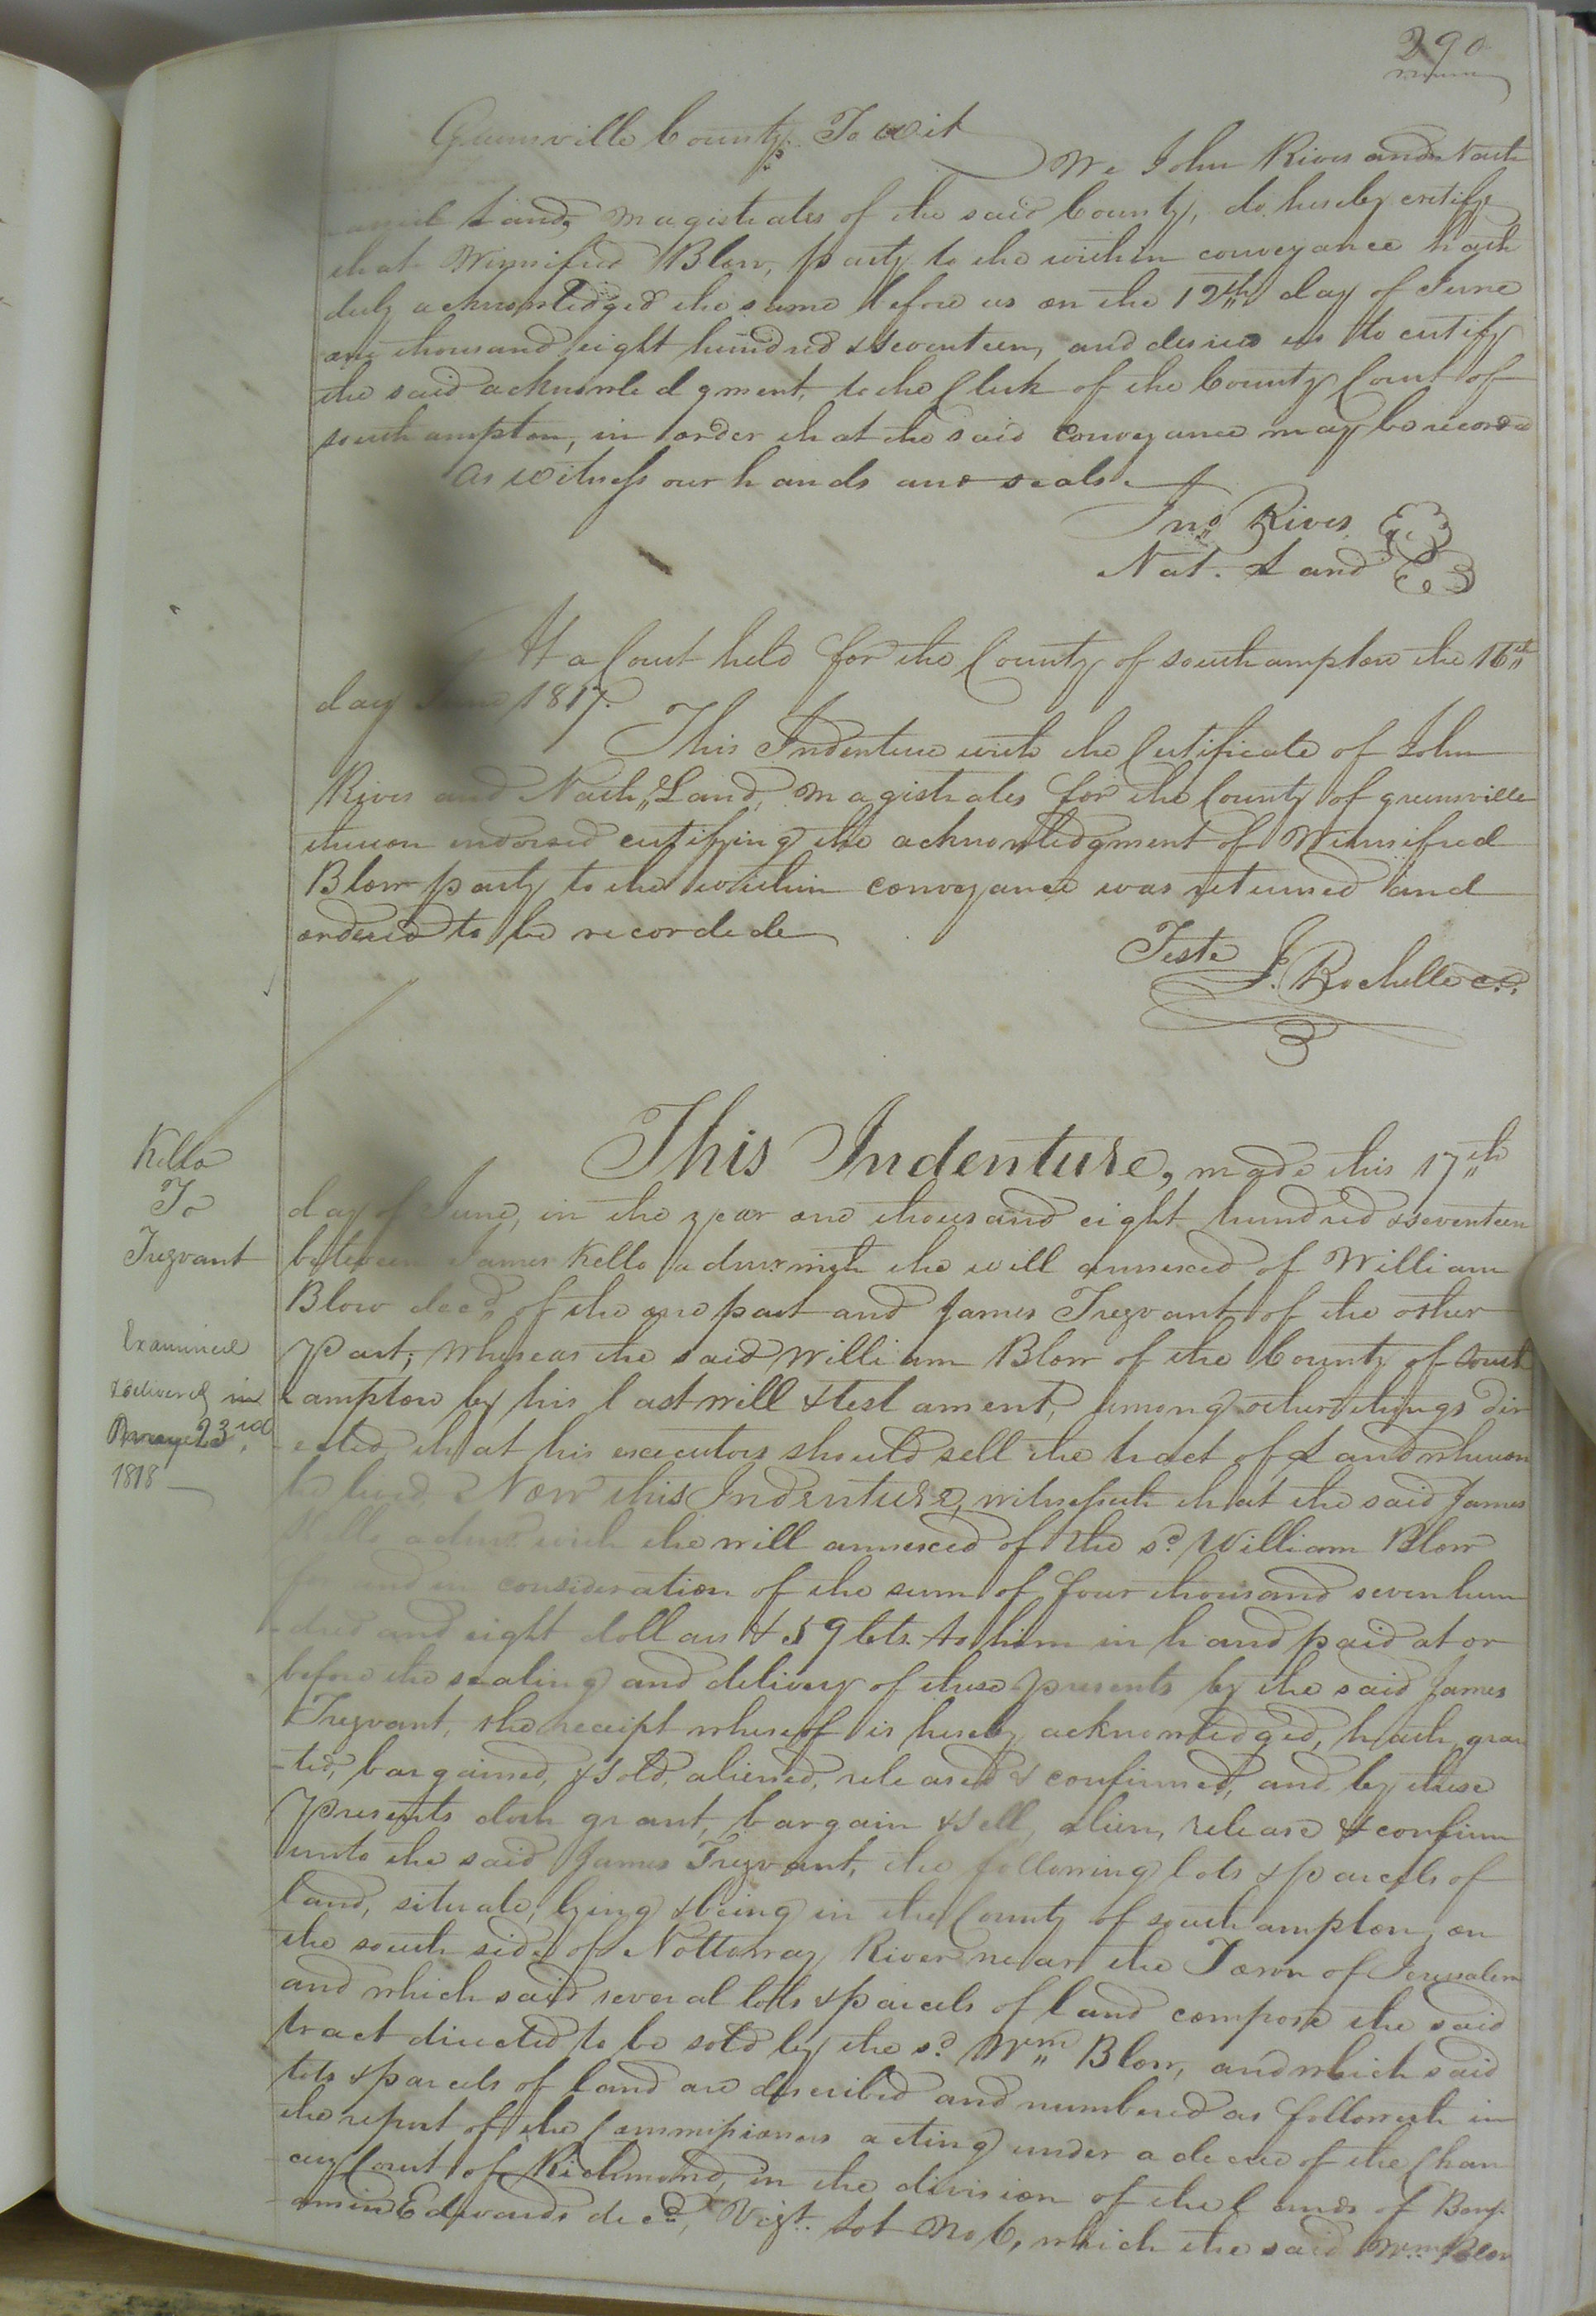 290
Greensville County, To wit
We John Rives and Nath
aniel Land, Magistrates of the said County, do hereby certify
that Winnifred Blow, party to the within conveyance hath
duly acknowledged the same before us on the 12th day of June
one thousand eight hundred & seventeen, and desired us to certify
the said acknowledgment, to the Clerk of the County Court of
southampton, in order that the said Conveyance may be recorded
As witness our hands and seals.
Jno. Rives
Nat. Land
At a Court held for the County of southampton the 16th
day June 1817.
This Indenture with the Certificate of John
Rives and Nath'l Land, Magistrates for the County of greensville
thereon endorsed certifying the acknowledgment of Winnifred
Blow party to the within conveyance was returned and
ordered to be recorded
Teste
J. Rochelle c.s.
Kello
To
Trezvant
Examined
delivered in
23rd
1818
This Indenture, made this 17th
day of June, in the year one thousand eight hundred & seventeen
between James Kello admr with the will annexed of William
Blow decd, of the one part and James Trezvant of the other
Part; Whereas the said William Blow of the County of South
ampton by his last will & testament, among other things dir
-ected, that his executors should sell the tract of Land whereon
he lived, Now this Indenture, witnesseth that the said James
Kello admr with the will annexed of the sd. William Blow
for and in consideration of the sum of four thousand seven hun
-dred and eight dollars & 59 Cts. to him in hand paid at or
before the sealing and delivery of these presents by the said James
Trezvant, the receipt whereof is hereby acknowledged, hath gran
-ted, bargained, & sold, aliened, released & confirmed, and by these
Presents doth grant, bargain & sell, alien, release & confirm
unto the said James Trezvant, the following lots & parcels of
land, situate, lying & being in the County of southampton, on
the south side of Nottoway River near the Town of Jerusalem
and which said several lots & parcels of land compose the said
tract directed to be sold by the sd. Wm Blow, and which said
lots & parcels of land are described and numbered as followeth in
the report of the Commissioners acting under a decree of the Chan
-cery Court of Richmond, in the division of the lands of Benj-
-amin Edwards decd, Vizt. Lot No 6, which the said Wm Blow